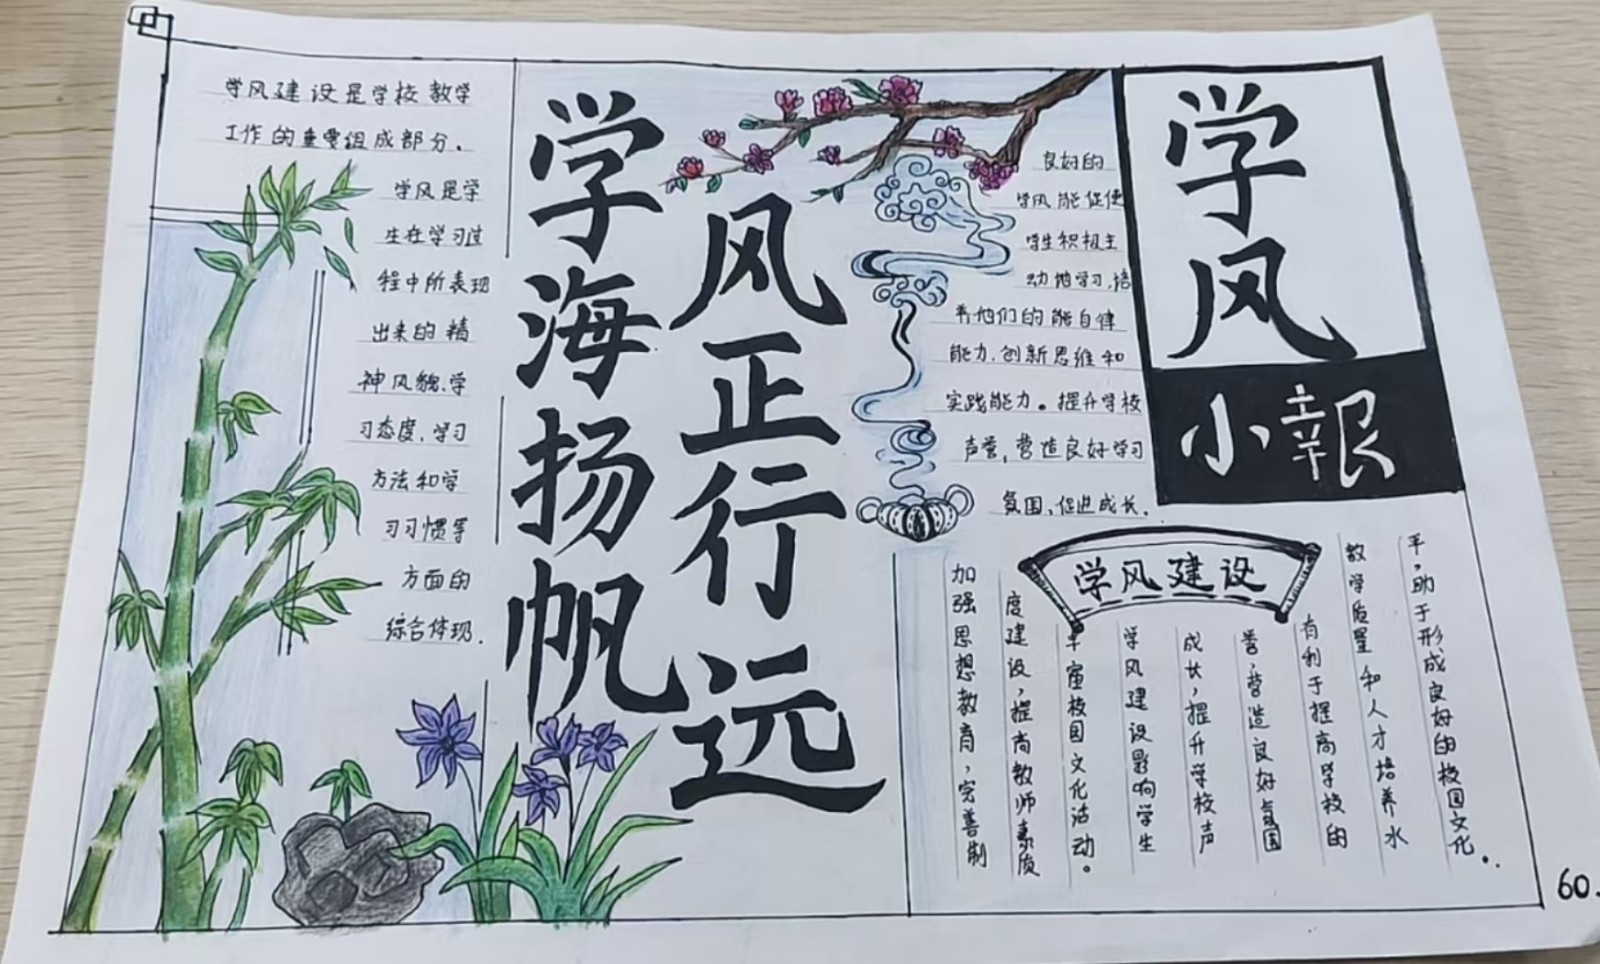 学风建设是学校教学
工作的重要组成部分.
学风是学
生在学习过
程中所表现
出来的精
神风貌、学
习态度,学习
方法和学
习习惯等
方面的
综合体现.
学海扬帆
风正行远
良好的
学风能促使
学生积极主
动地学习,培
养他们的能自律
能力,创新思维和
实践能力。提升学校
声誉,营造良好学习
氛围,促进成长.
学风
小報
学风建设
加强思想教育,完善制
度建设,提高教师素质
丰富校园文化活动。
学风建设影响学生
成长,提升学校声
誉,营造良好氛围
有利于提高学校的
教学质量和人才培养水
平,助于形成良好的校园文化.
60.